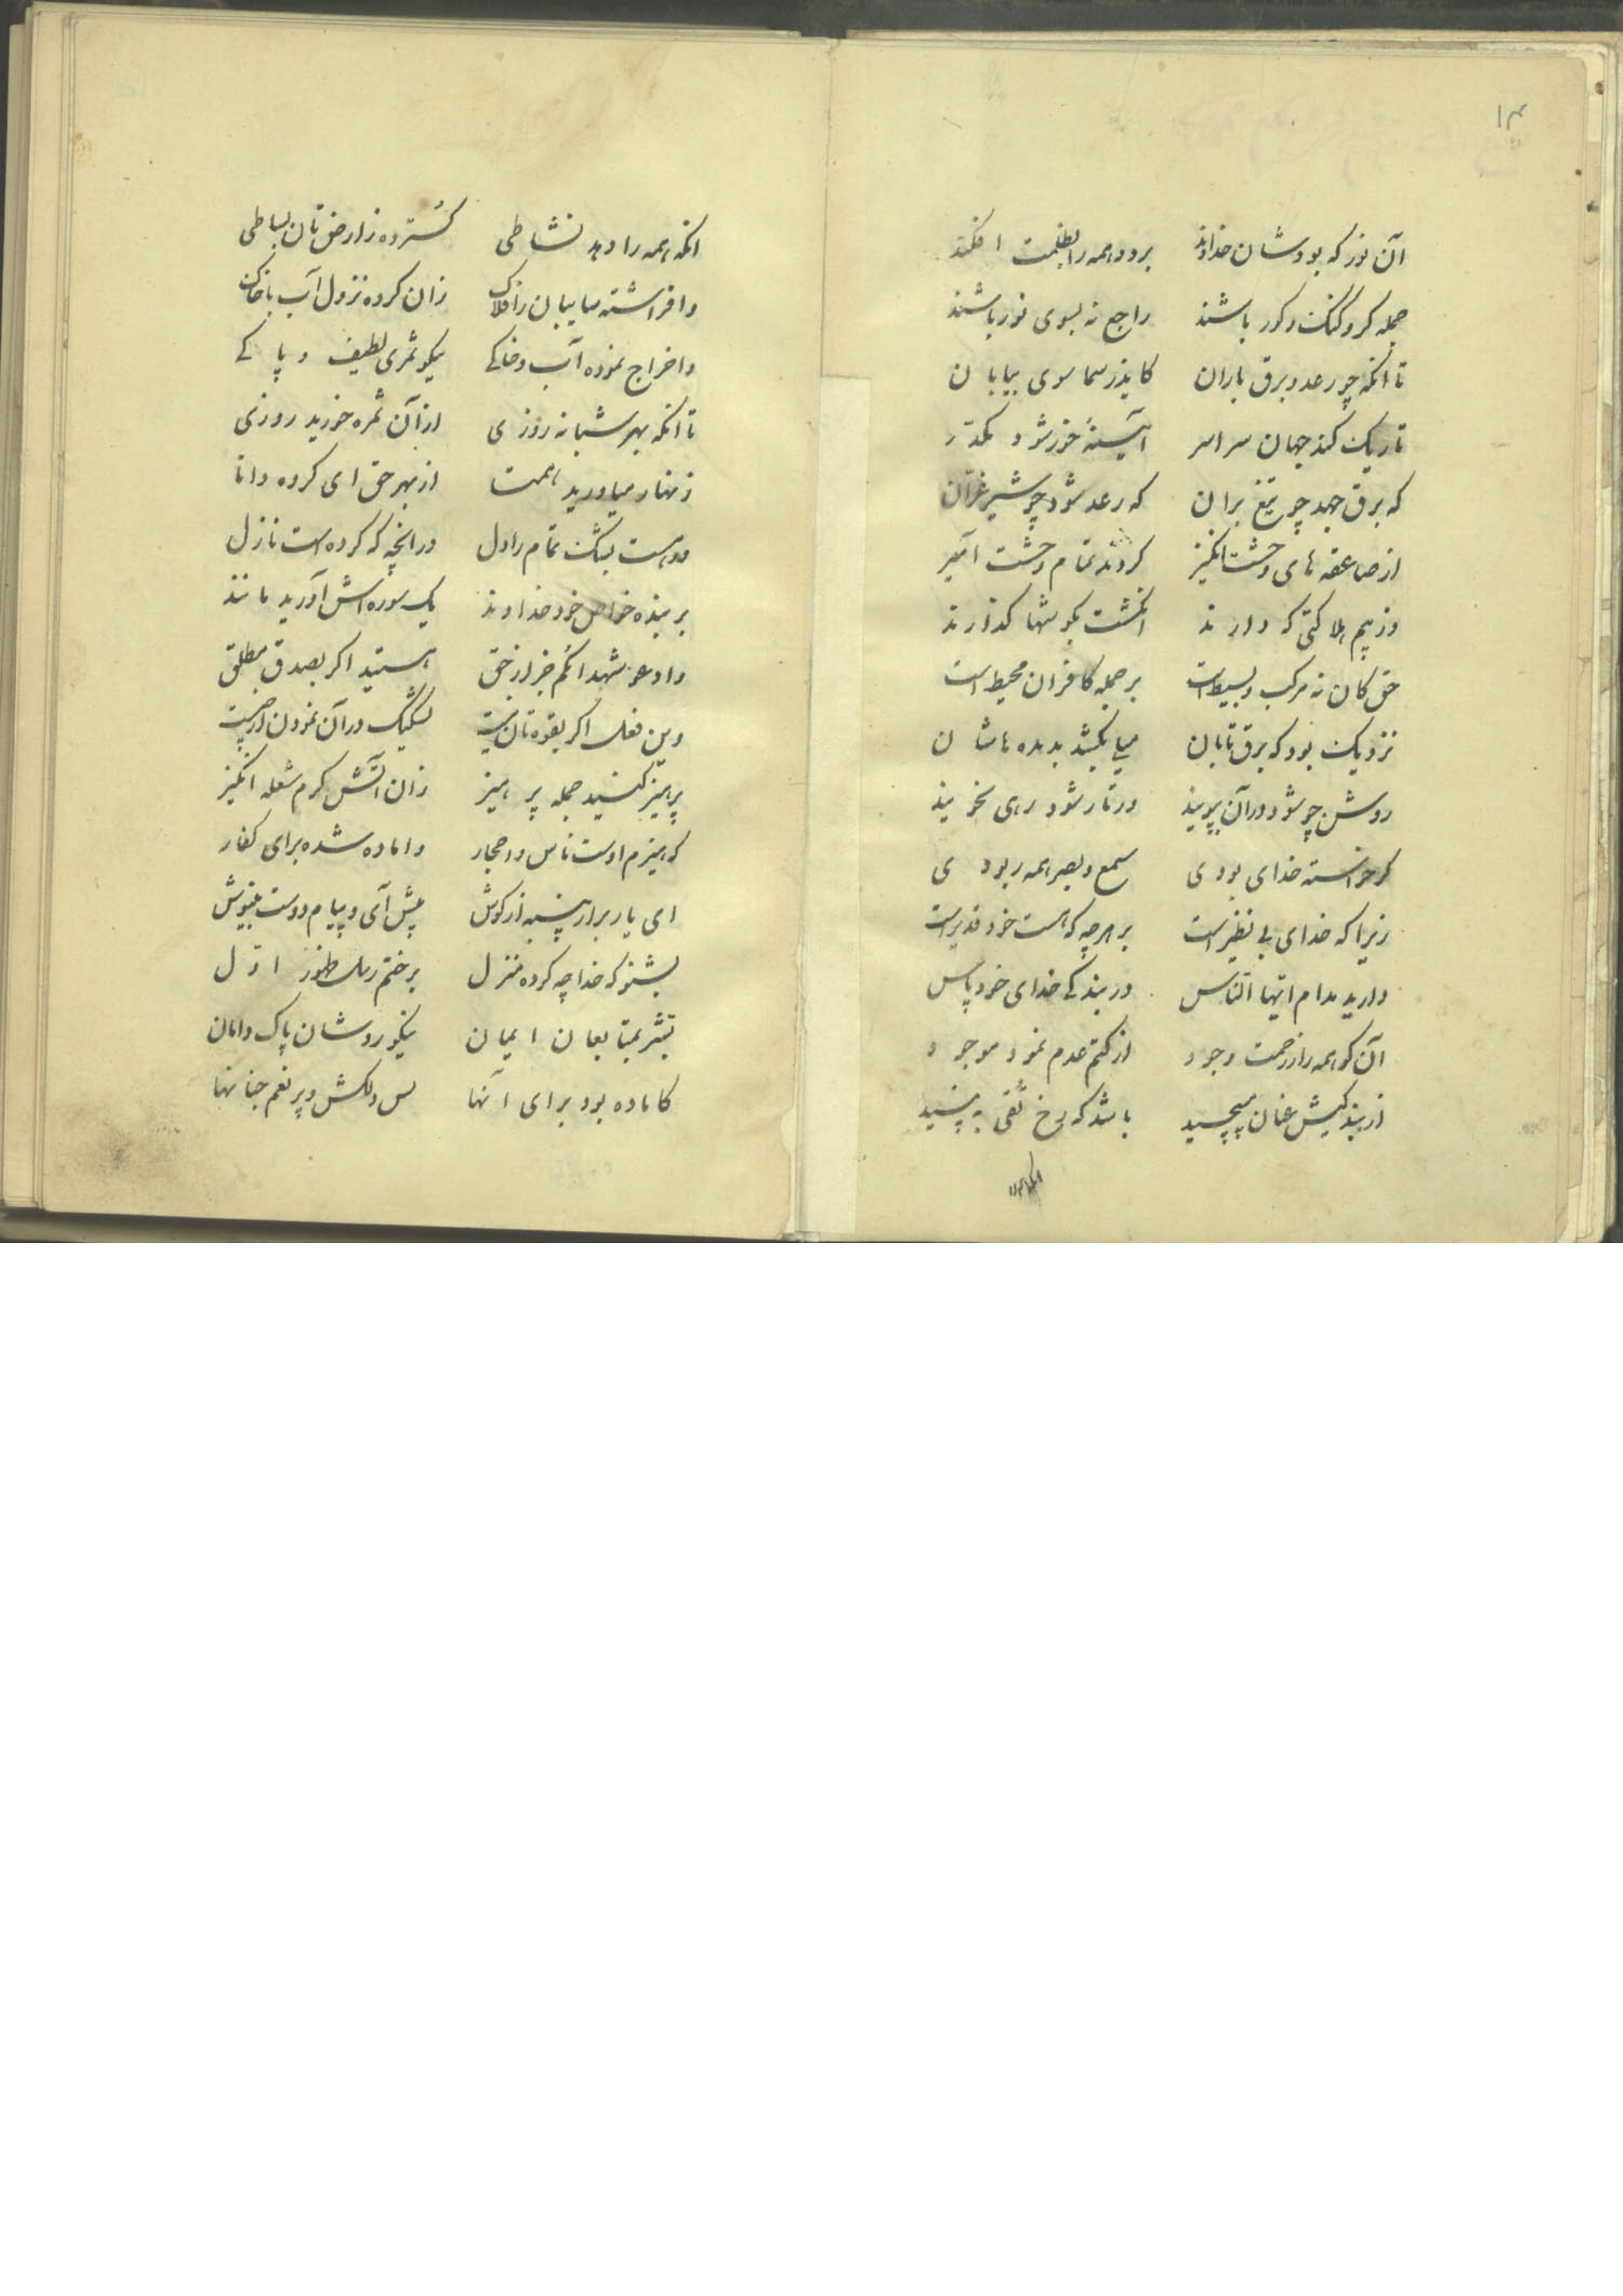 ۱۳
آن نور که بودشان خداوند برد و همه را بظلمت افکند
جمله کر و گنگ و کور باشند راجع نه بسوی نور باشند
تا انکه چو رعد و برق باران کاید ز سما سوی بیابان
تاریک کند جهان سراسر آیینهٔ خور شود مکدّر
که برق جهد چو تیغ بران که رعد شود چو شیر غرّان
از صاعقه های وحشت انگیز کردند تمام وحشت آمیز
وز بیم هلاکتی که دارند انگشت بگوشها گذارند
حق کان نه مرکب و بسیط است بر جمله کافران محیط است
نزدیک بود که برق تابان می بکشد بدیده هاشان
روشن چو شود در آن بپویند ور تار شود رهی نجویند
گر خواسته خدای بودی سمع و بصر همه ربودی
زیرا که خدای بی نظیر است بر هرچه که هست خود قدیر است
دارید مدام ایّها النّاس در بندگی خدای خود پاس
آن کو همه را ز رحمت وجود از کتم عدم نمود موجود
از بندگیش عنان مپیچید باشد که رخ تُقی به بینید
انکه همه را
انکه همه را دهد نشاطی گسترده ز ارض تان بساطی
وافراشته سایبان ز افلاک زان کرده نزول آب با خاک
واخراج نموده آب و خاکی نیکو ثمری لطیف و پاکی
تا انکه بهر شبانه روزی از آن ثمره خورید روزی
زنهار میاورید همت از بهر حق ای کروه دانا
ور هست بشک تمام را دل در انچه که کرده است نازل
بر بنده خواص خود خداوند یک سوره اش آورید مانند
وادعو شهدائکم جز از حق هستید اگر بصدق مطلق
وین فعل اگر بقوه تان نیست تشکیک در آن نمودن از چیست
پرهیز کنید جمله پرهیز زان آتش گرم شعله انگیز
که هیزم اوست ناس و احجار واماده شده برای کفار
ای یار برار پنبه از گوش پیش آی و پیام دوست بنیوش
بشنو که خدا چه کرده منزل بر ختم رسل طهور اوّل
بشّر بمتابعان ایمان نیکو روشان پاک دامان
کاماده بود برای آنها بس دلکش و پر نعم جنانها